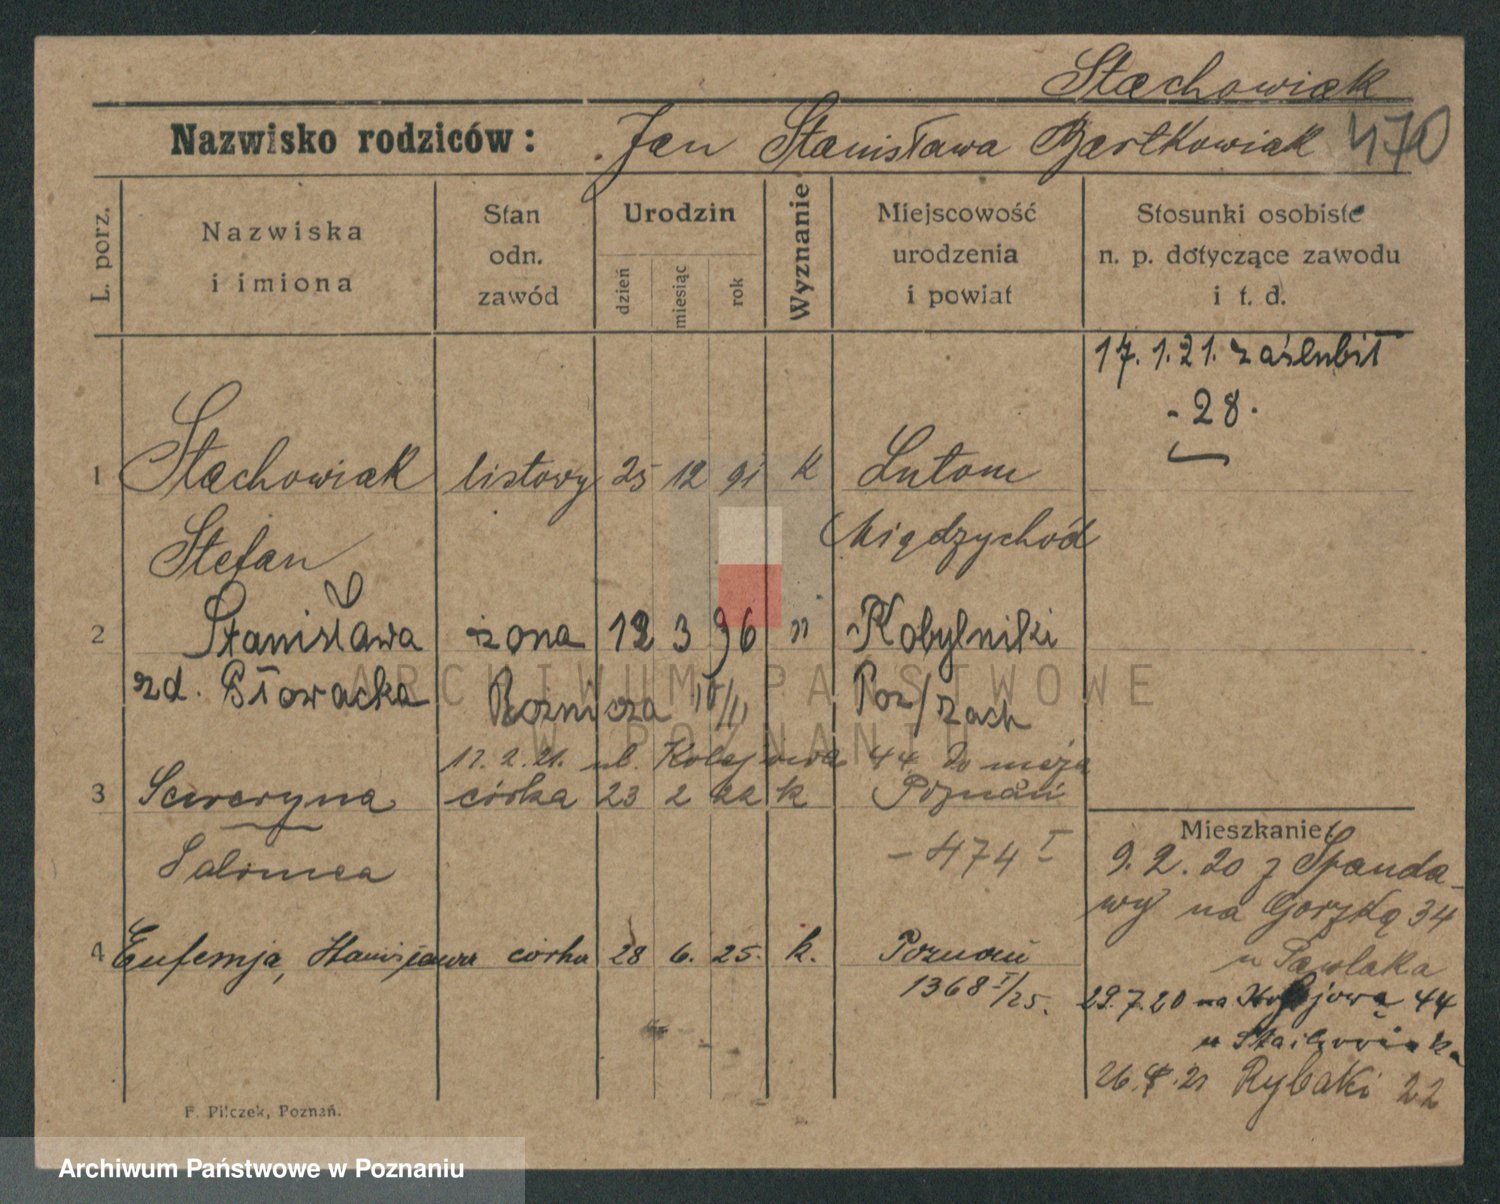 Stachowiak
Nazwisko rodziców: Jan Stanisława Bartkowiak 470
L. porz.
Nazwiska
i imiona
Stan
odn.
zawód
Urodzin
dzień
miesiąc
rok
Wyznanie
Miejscowość
urodzenia
i powiat
Stosunki osobiste
n. p. dotyczące zawodu
i t. d.
17.1.21. zaślubił
- 28.
1 Stachowiak listowy 25 12 91 k Lutom
Stefan Międzychód
2 Stanisława żona 12 3 96 " Kobylniki
zd. Błowacka Poz/zach
17.2.21. ul. Kolejowa 44 do męża
3 Seweryna córka 23 2 22 k Poznań
Salomea - 474 I
4 Eufemja, Stanisława córka 28 6. 25. k. Poznań
1368 I/25.
Mieszkanie:
9.2.20 z Spanda-
wy na Gorzką 34
u Pawlaka
29.7.20 na Kolejową 44
u Stachowiaka
26. 21 Rybaki 22
F. Pilczek, Poznań.
ARCHIWUM PAŃSTWOWE
W POZNANIU
Archiwum Państwowe w Poznaniu